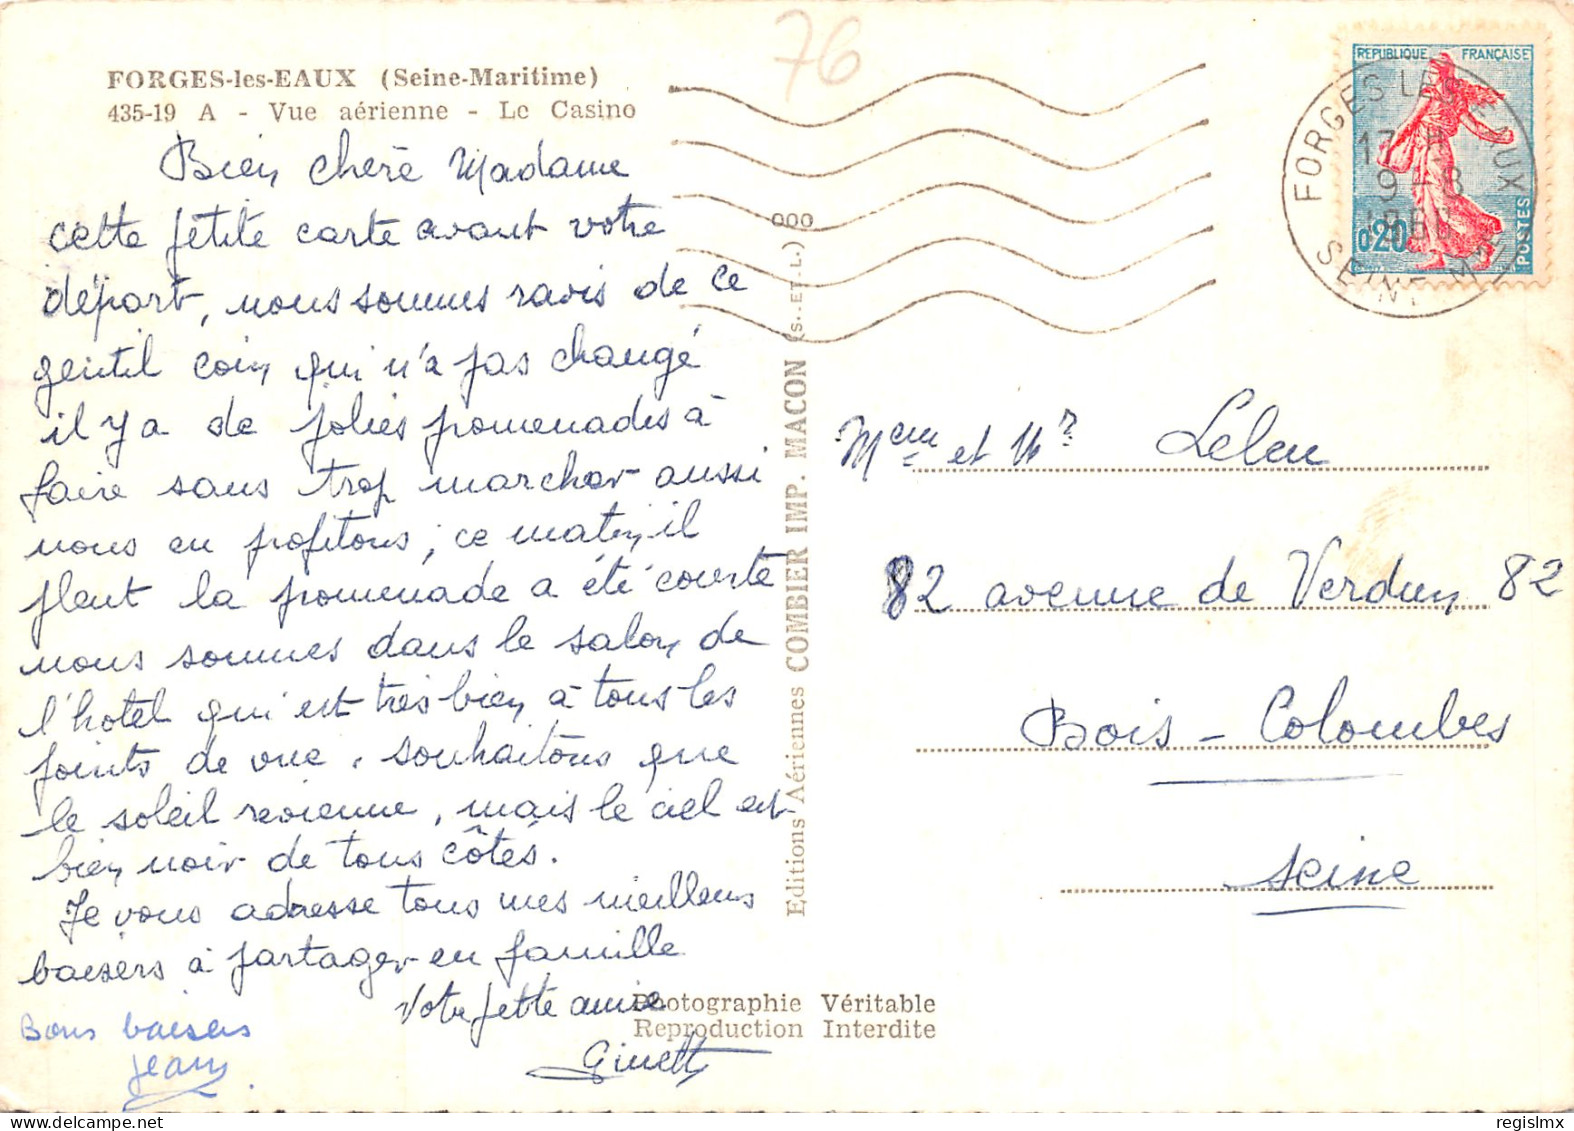 76
FORGES-les-EAUX (Seine-Maritime)
435-19 A - Vue aérienne - Le Casino
Bien chère Madame
cette petite carte avant votre
départ, nous sommes ravis de ce
gentil coin qui n'a pas changé
il y a de jolies promenades à
faire sans trop marcher aussi
nous en profitons, ce matin il
pleut la promenade a été courte
nous sommes dans le salon de
l'hotel qui est très bien à tous les
points de vue. souhaitons que
le soleil revienne, mais le ciel est
bien noir de tous côtés.
Je vous adresse tous mes meilleurs
baisers à partager en famille
Votre petite amie
Ginette
Bons baisers
Jean
Editions Aériennes COMBIER IMP. MACON (S.-ET-L.) 000
Photographie Véritable
Reproduction Interdite
REPUBLIQUE FRANÇAISE
0,20
POSTES
FORGES LES EAUX
17 H
9-8
1960
SEINE MME
Mme et Mr Leleu
82 avenue de Verdun 82
Bois-Colombes
Seine
www.delcampe.net
regislmx